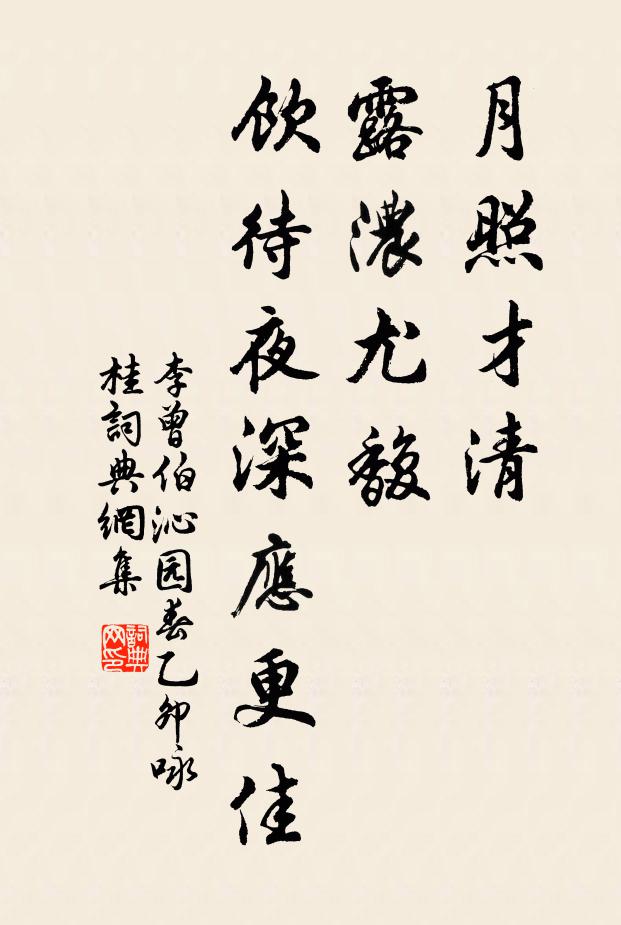 月照才清
露濃尤馥
飲待夜深應更佳
李曾伯沁园春乙卯咏
桂詞典網集
詞典網印